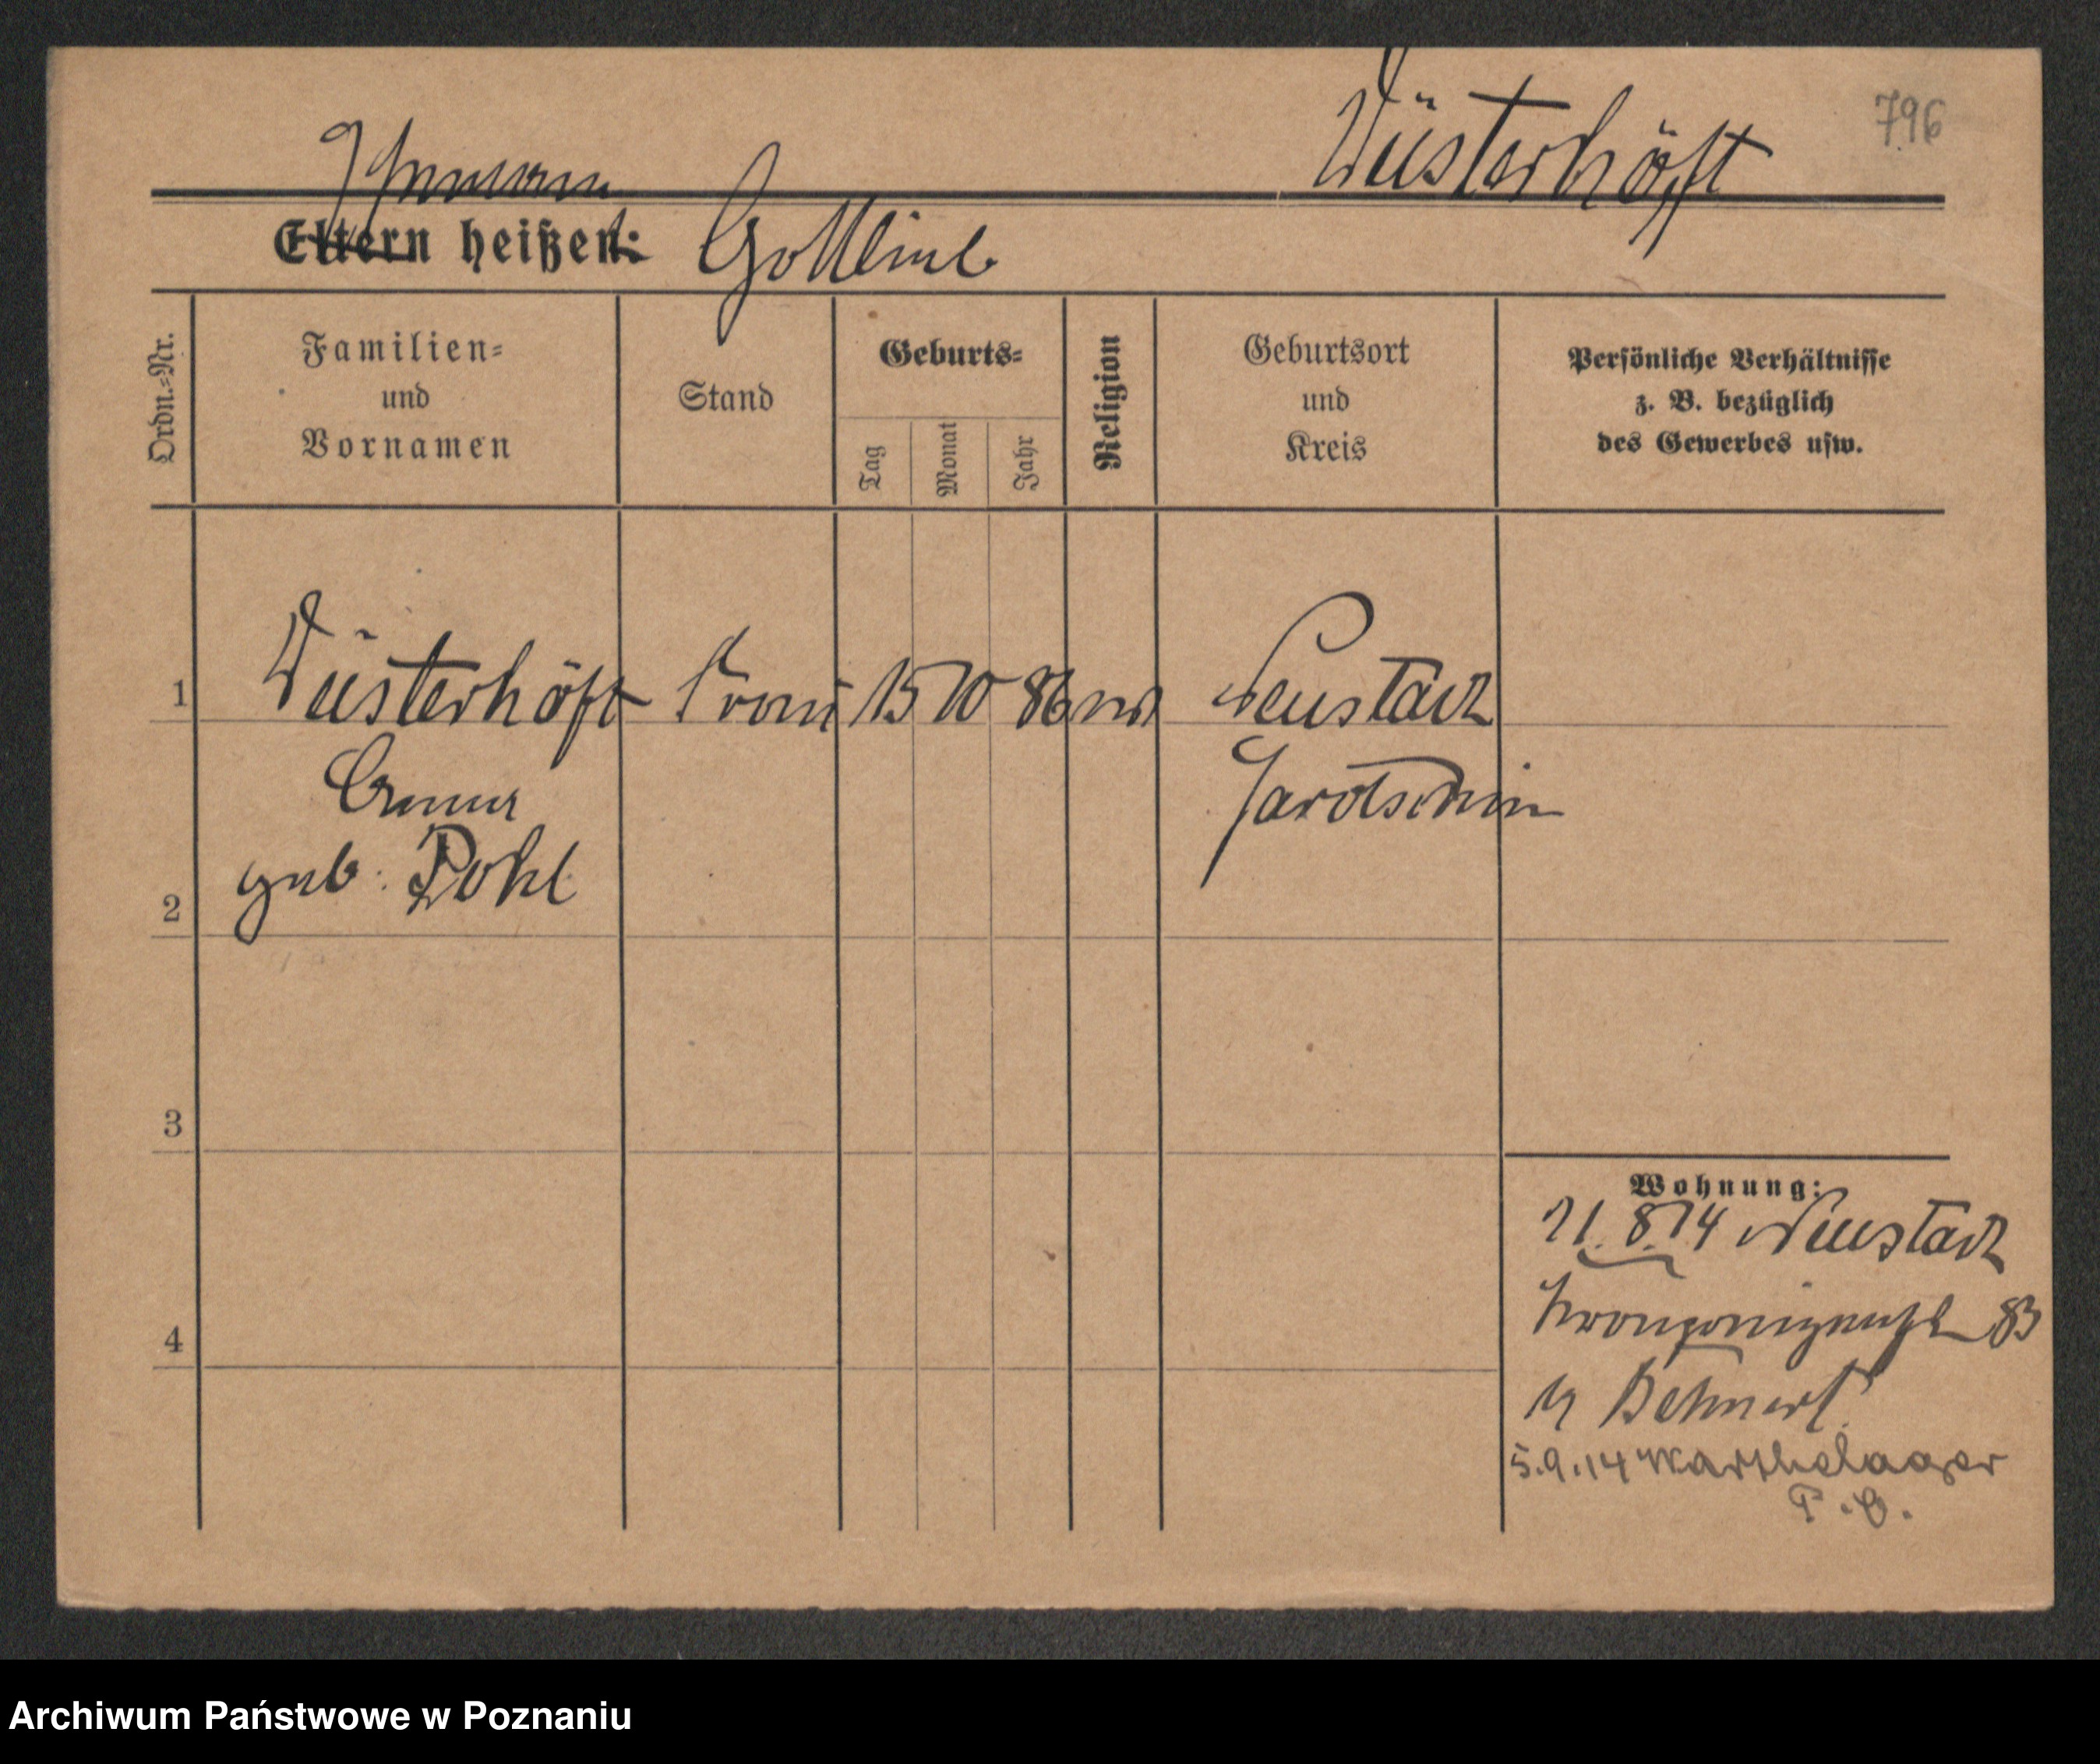 796
Wüsterhöft
Ehemann
Eltern heißen: Gottlieb
Ordn.-Nr.
Familien-
und
Vornamen
Stand
Geburts-
Tag
Monat
Jahr
Religion
Geburtsort
und
Kreis
Persönliche Verhältnisse
z. B. bezüglich
des Gewerbes usw.
1 Wüsterhöft Frau 15 10 86 ev Neustadt
Anna Jarotschin
geb. Pohl
2
3
4
Wohnung:
21.8.14 Neustadt
Kronprinzenstr 83
b/ Behnert
5.9.14 Warthelager
P. O.
Archiwum Państwowe w Poznaniu